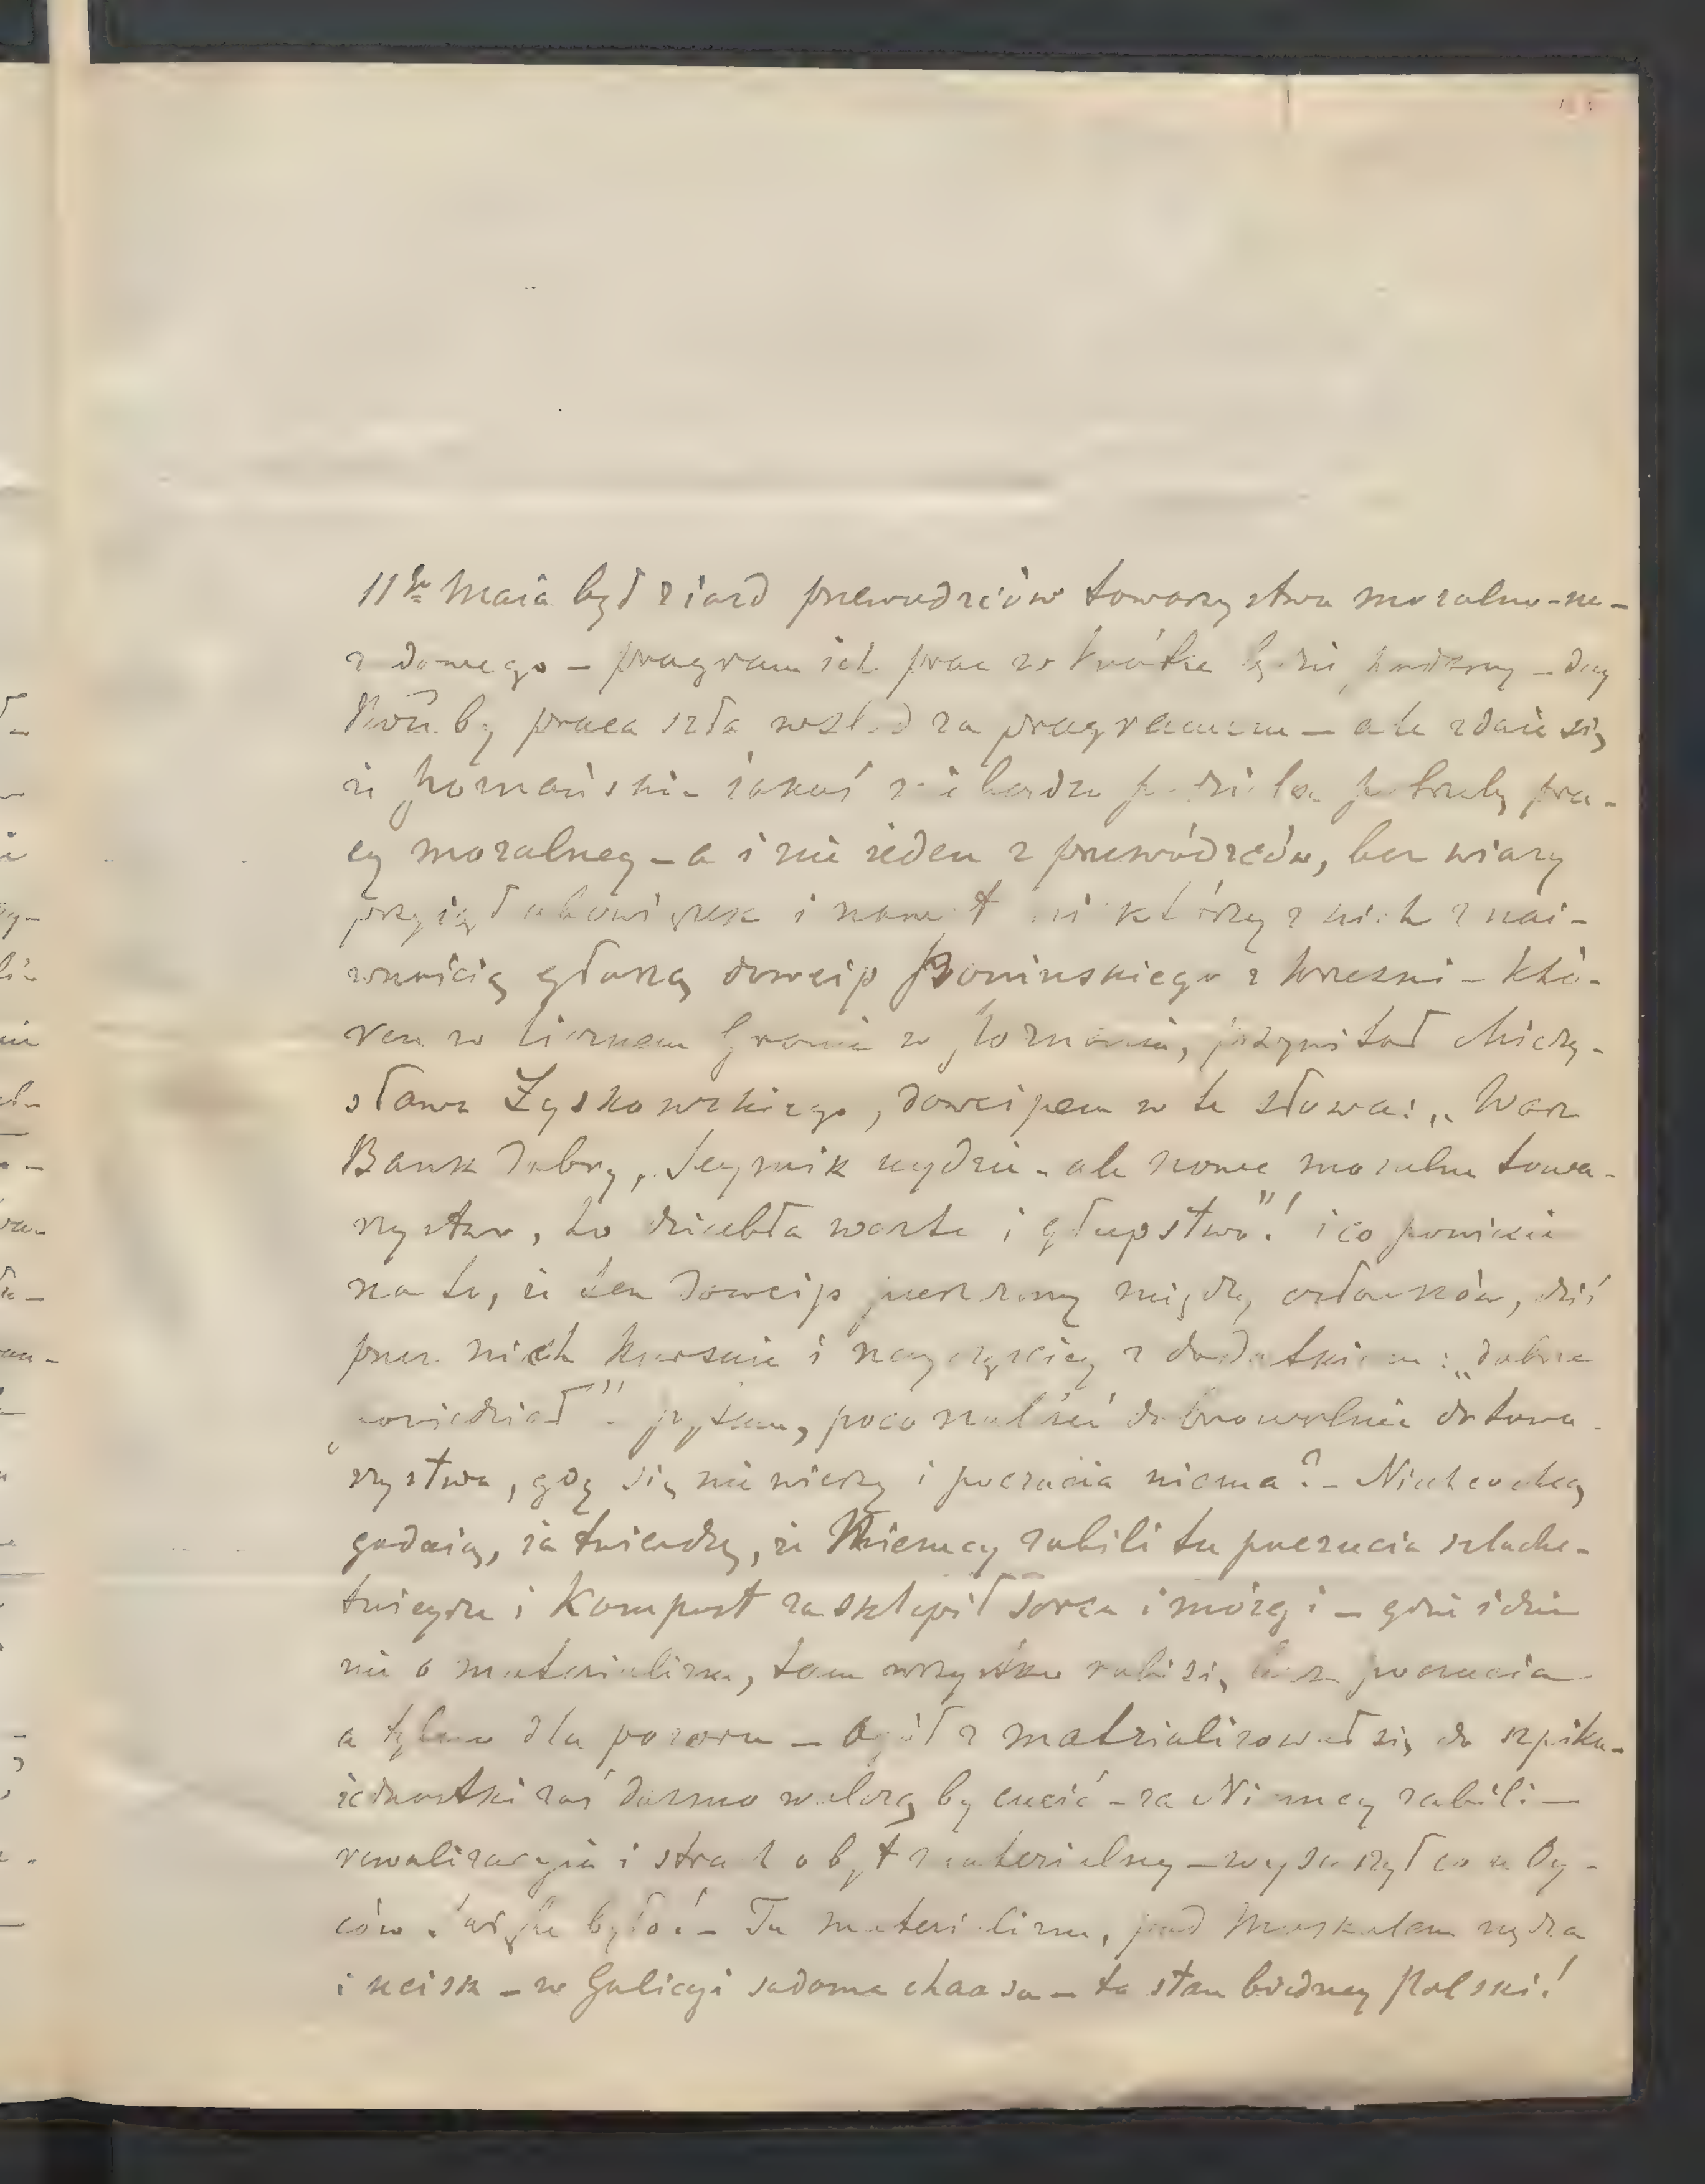 11go Maia był ziazd przewodzców towarzystwa moralno-na-
rodowego – program ich prac w krótce będzie, – day
Boże by praca szła w ślad za programem – ale zdaie się
że poznański – iakoś nie bardzo podziela potrzeby pra-
cy moralney – a i nie ieden z przewódzców, bez wiary
przyiął obowiązek i nawet niektórzy z nich z nai-
wnością głoszą dowcip z Wrzesni – któ-
ren w licznem gronie w Poznaniu, przywitał Mieczy-
sława Łyskowskiego, dowcipem w te słowa: „Wasz
Bank dobry, Seymik uydzie – ale nowe moralne towa-
rzystwo, to diabła warte i głupstwo"! i co powiecie
na to, że ten dowcip puszczony między członków, dziś
przez nich kursuie i nayczęściey z dodatkiem: „dobrze
powiedział" – pytam, poco należeć dobrowolnie do towa-
rzystwa, gdy się nie wierzy i poczucia niema? – Niech co chcą
gadaią, ia twierdzę, że Niemcy zabili tu poczucia szlache-
tnieysze i Kompost zasklepił serca i mózgi – gdzie idzie
nie o materializm, tam wszystko robi się bez poczucia
a tylko dla pozoru – Ogół zmaterializował się do szpiku –
iednostki zaś darmo walczą by cucić – za Niemcy zabili –
rywalizacyia i strach o byt materialny – wysuszył co u Oy-
ców święte było! – Tu materializm, pod Moskalem nędza
i ucisk – w Galicyi sodoma chaosu – to stan biedney Polski!